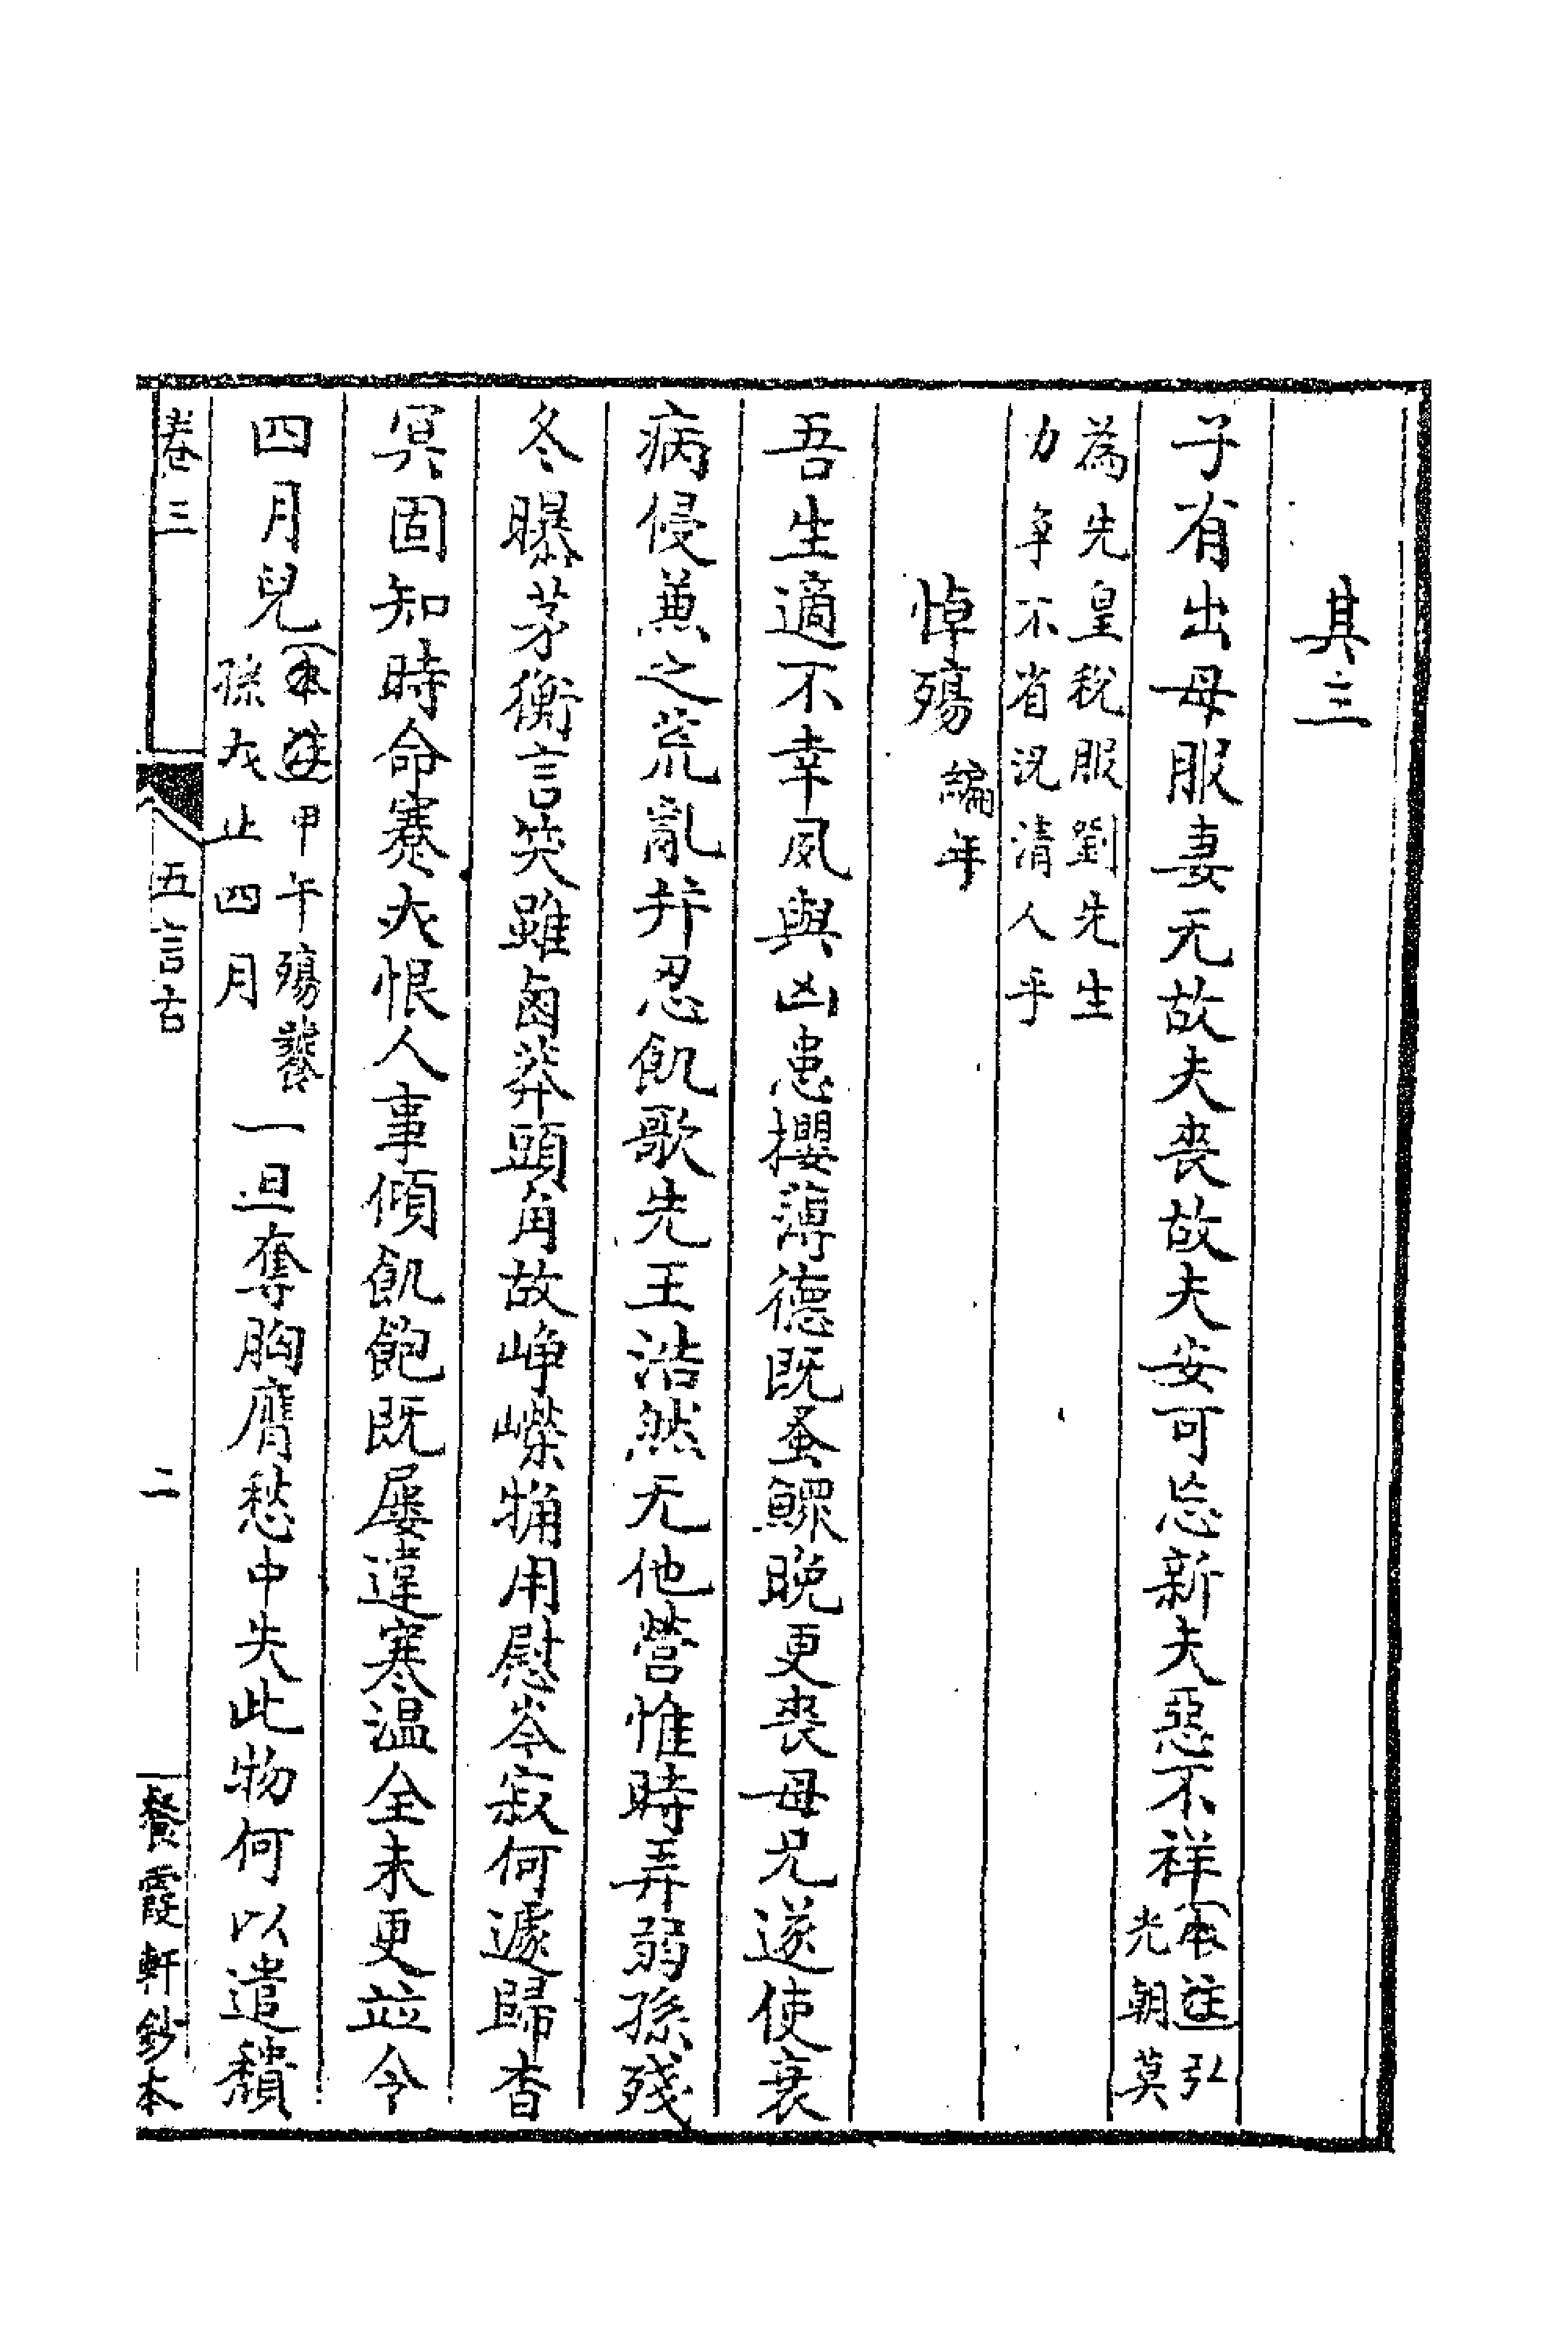 其三
子有出母服妻无故夫喪故夫安可忘新夫惡不祥(本注)弘光朝莫
為先皇税服劉先生
力爭不省況清人乎
悼殤 編年
吾生適不幸夙與凶患攖薄德既蚤鰥晚更喪母兄遂使衰
病侵兼之荒亂并忍飢歌先王浩然无他營惟時弄弱孫殘
冬曝茅衡言笑雖鹵莽頭角故崢嶸犕用慰岑寂何遽歸杳
冥固知時命蹇大恨人事傾飢飽既屡違寒温全未更並今
四月兒(本注)甲午殤養孫大止四月一旦奪胸膺愁中失此物何以遣頹
卷三 五言古 二 餐霞軒鈔本